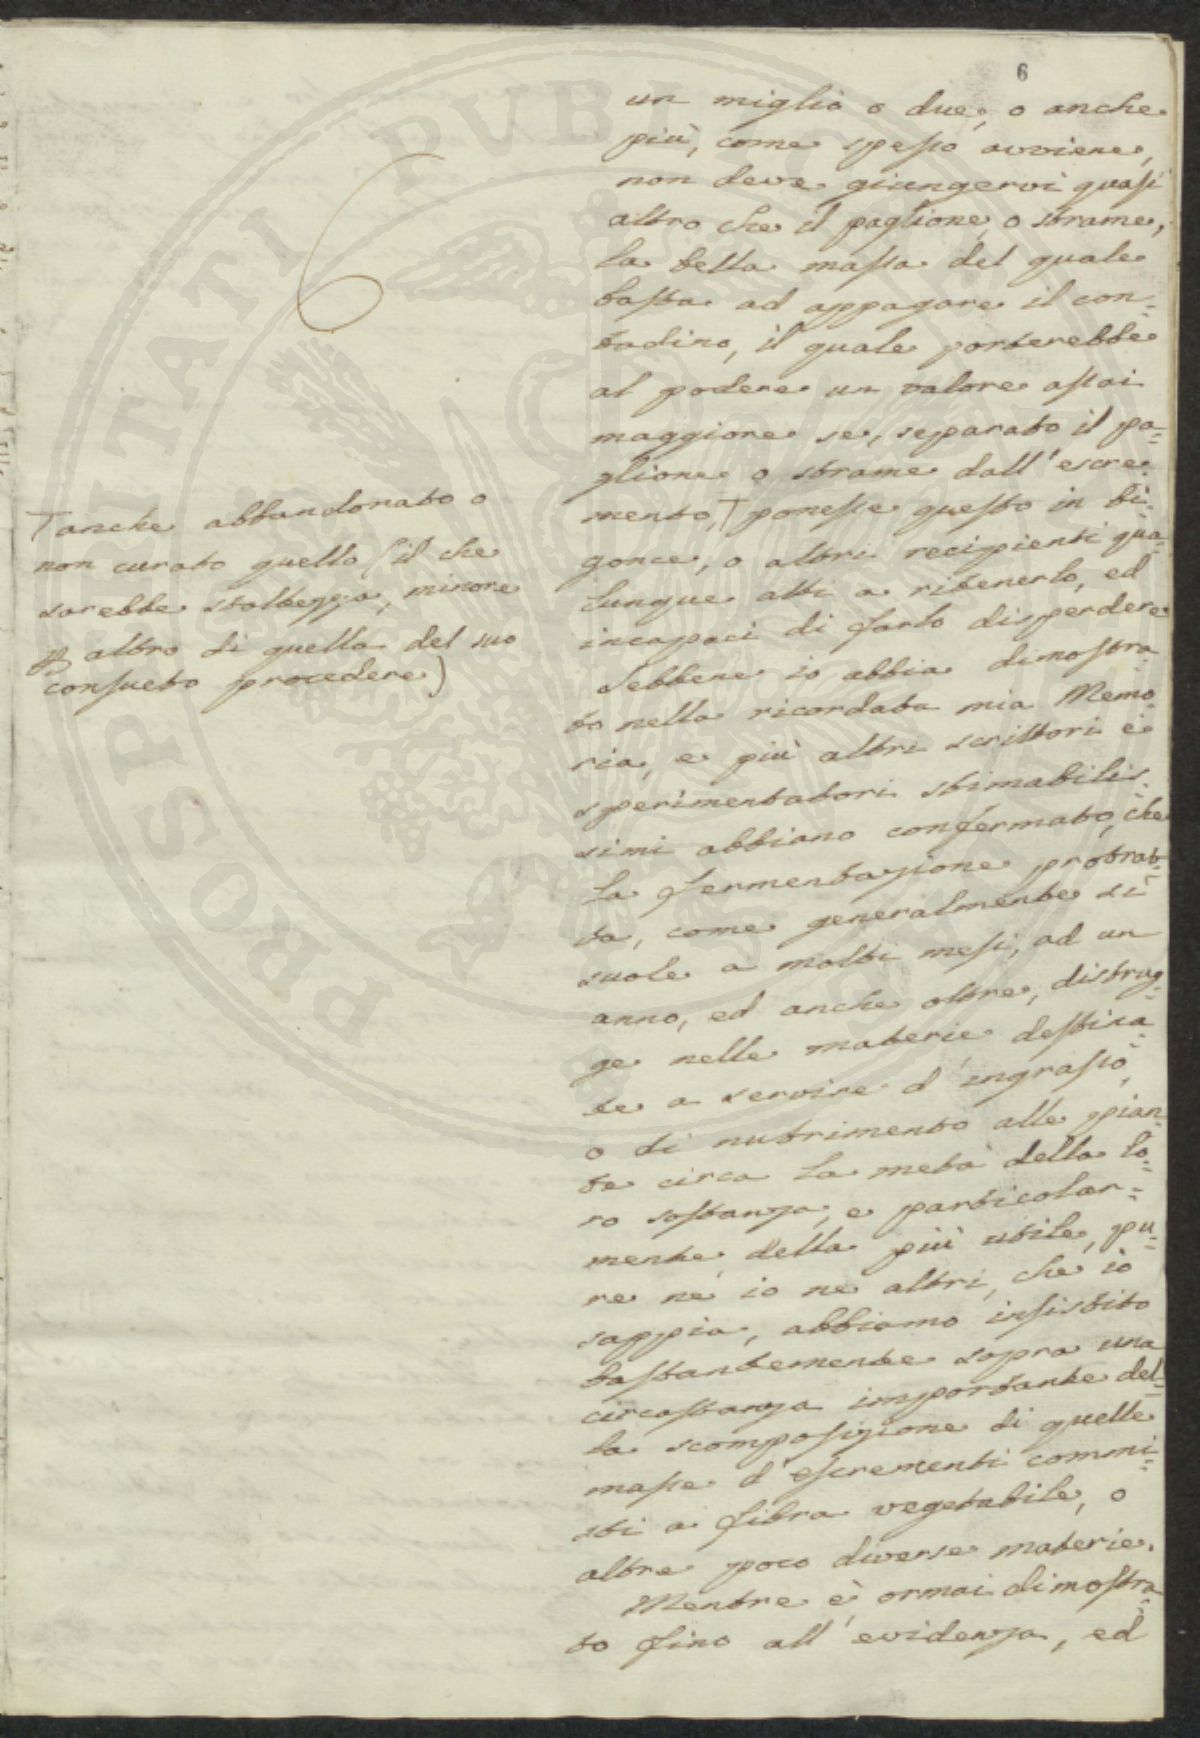 6
un miglio o due, o anche
più, come spesso avviene,
non deve giungervi quasi
altro che il paglione, o strame,
la bella massa del quale
basta ad appagare il con=
tadino, il quale porterebbe
al podere un valore assai
maggiore se, separato il pa=
glione o strame dall'escre=
mento, T ponesse questo in bi=
gonce, o altri recipienti qua=
lunque atti a ritenerlo, ed
incapaci di farlo disperdere
Sebbene io abbia dimostra=
to nella ricordata mia Memo=
ria, e più altri scrittori e
sperimentatori stimabilis=
simi abbiano confermato, che
la fermentazione protrat=
ta, come generalmente si
suole a molti mesi, ad un
anno, ed anche oltre, distrug=
ge nelle materie destina=
te a servire d'ingrasso,
o di nutrimento alle pian=
te circa la metà della lo=
ro sostanza, e particolar=
mente della più utile, pu=
re nè io ne altri, che io
sappia, abbiamo insistito
bastantemente sopra una
circostanza importante del=
la scomposizione di quelle
masse d'escrementi commi=
sti a fibra vegetabile, o
altre poco diverse materie.
Mentre è ormai dimostra=
to fino all'evidenza, ed
T anche abbandonato o
non curato quello (il che
sarebbe stoltezza, minore
altro di quella del suo
consueto procedere)
PROSPERITATI PUBLICAE